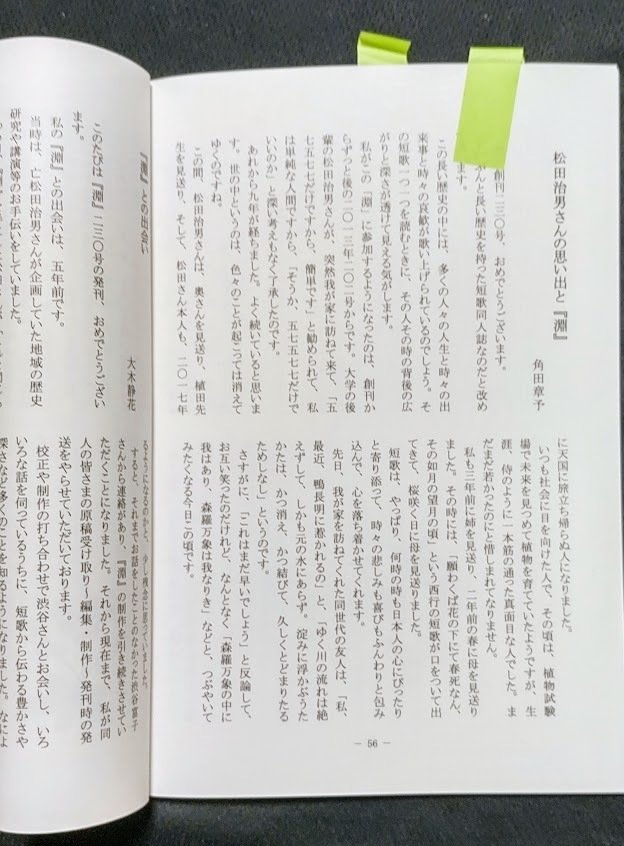 松田治男さんの思い出と『淵』
角田章予
創刊二三〇号、おめでとうございます。
んと長い歴史を持った短歌同人誌なのだと改め
ます。
この長い歴史の中には、多くの人々の人生と時々の出
来事と時々の哀歓が歌い上げられているのでしょう。そ
の短歌一つ一つを読むときに、その人その時の背後の広
がりと深さが透けて見える気がします。
私がこの『淵』に参加するようになったのは、創刊か
らずっと後の二〇一三年二〇二号からです。大学の後
輩の松田治男さんが、突然我が家に訪ねて来て、「五
七五七七だけですから、簡単です」と勧められて、私
は単純な人間ですから、「そうか、五七五七七だけで
いいのか」と深い考えもなく了承したのです。
あれから九年が経ちました。よく続いていると思いま
す。世の中というのは、色々のことが起こっては消えて
ゆくのですね。
この間、松田治男さんは、奥さんを見送り、植田先
生を見送り、そして、松田さん本人も、二〇一七年
に天国に旅立ち帰らぬ人になりました。
いつも社会に目を向けた人で、その頃は、植物試験
場で未来を見つめて植物を育てていたようですが、生
涯、侍のように一本筋の通った真面目な人でした。ま
だまだ若かったのにと惜しまれてなりません。
私も三年前に姉を見送り、二年前の春に母を見送り
ました。その時には、「願わくば花の下にて春死なん、
その如月の望月の頃」という西行の短歌が口をついて出
てきて、桜咲く日に母を見送りました。
短歌は、やっぱり、何時の時も日本人の心にぴったり
と寄り添って、時々の悲しみも喜びもふんわりと包み
込んで、心を落ち着かせてくれます。
先日、我が家を訪ねてくれた同世代の友人は、「私、
最近、鴨長明に惹かれるの」と、「ゆく川の流れは絶
えずして、しかも元の水にあらず。淀みに浮かぶうた
かたは、かつ消え、かつ結びて、久しくとどまりたる
ためしなし」というのです。
さすがに、「これはまだ早いでしょう」と反論して、
お互い笑ったのだけれど、なんとなく「森羅万象の中に
我はあり、森羅万象は我なりき」などと、つぶやいて
みたくなる今日この頃です。
― 56 ―
『淵』との出会い
大木静花
このたびは『淵』二三〇号の発刊、おめでとうござい
ます。
私の『淵』との出会いは、五年前です。
当時は、亡松田治男さんが企画していた地域の歴史
研究や講演等のお手伝いをしていました。
るようになるのかと、少し残念に思っていました。
すると、それまでお話をしたことのなかった渋谷富子
さんから連絡があり、『淵』の制作を引き続きさせてい
ただくことになりました。それから現在まで、私が同
人の皆さまの原稿受け取り～編集・制作～発刊時の発
送をやらせていただいております。
校正や制作の打ち合わせで渋谷さんとお会いし、いろ
いろな話を伺っているうちに、短歌から伝わる豊かさや
深さなど多くのことを知るようになりました。なによ